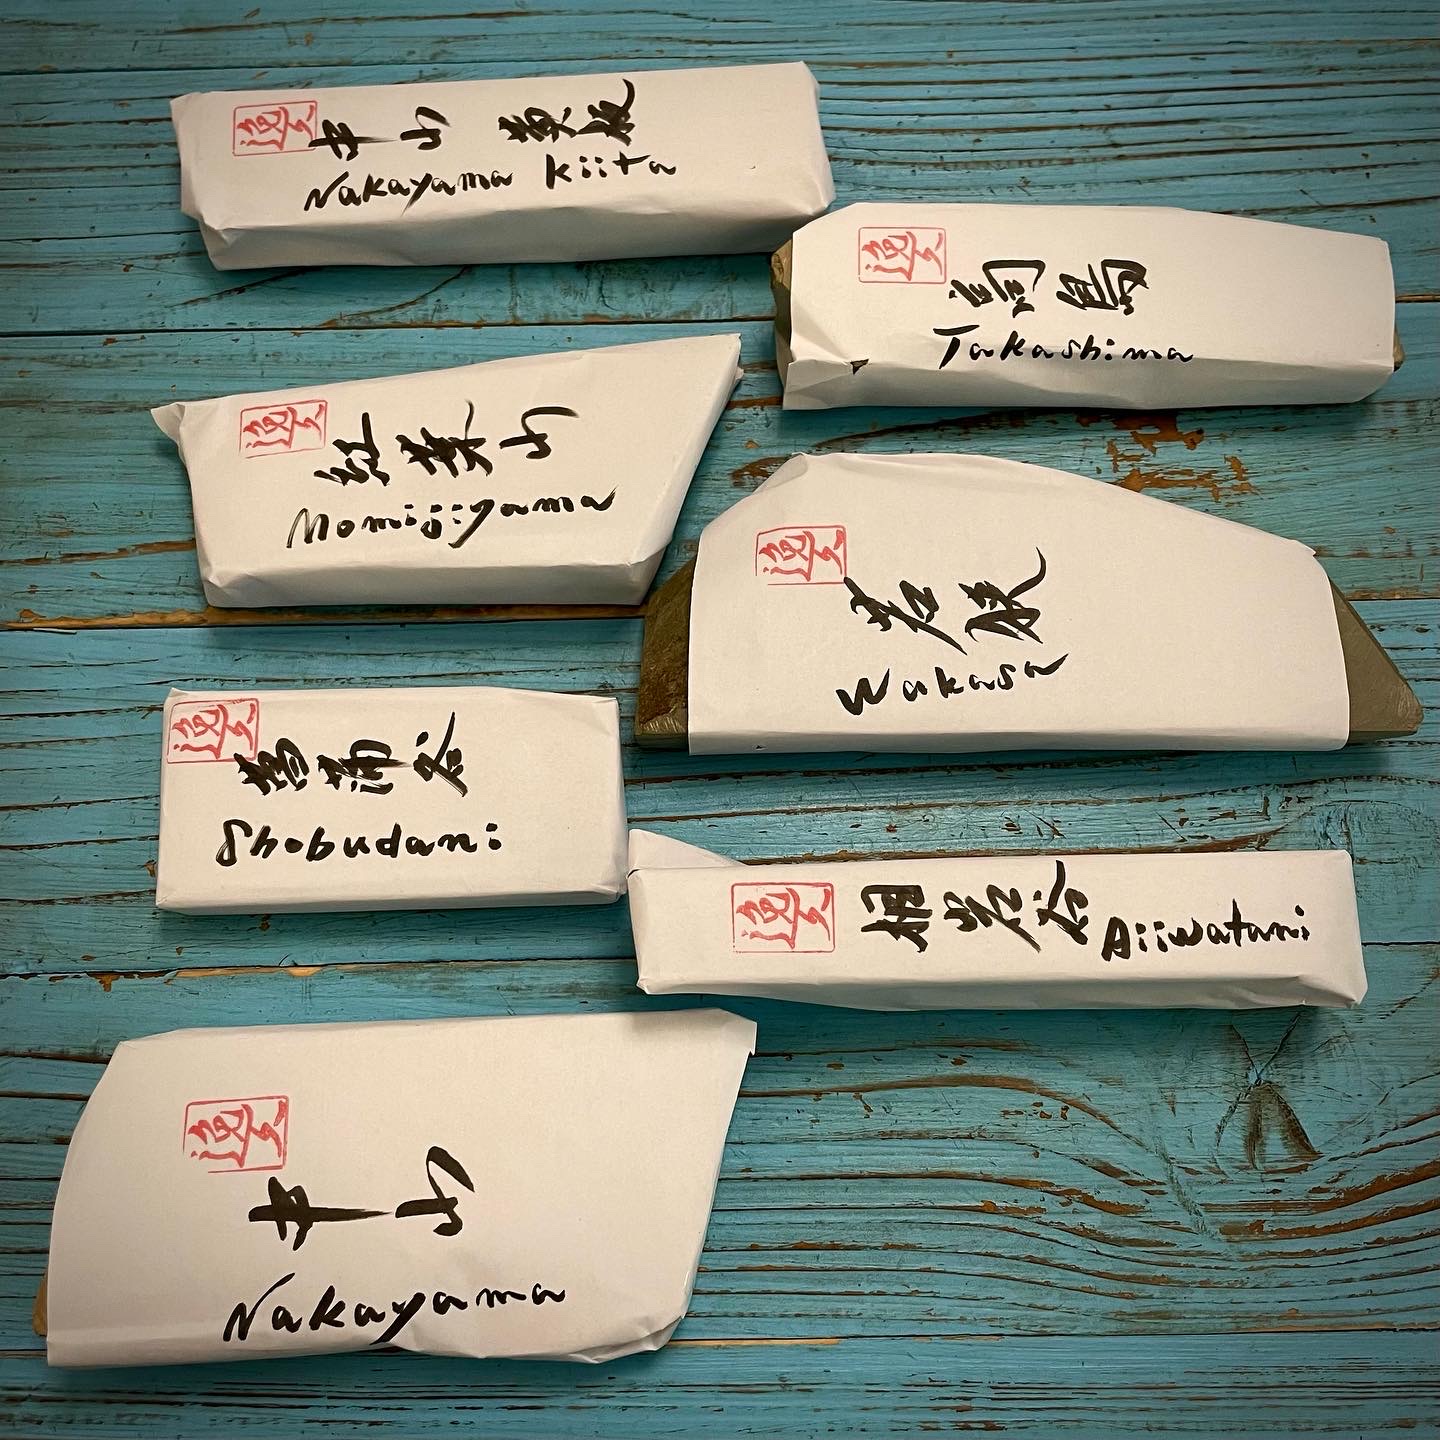 中山 黄板
Nakayama Kiita
高島
Takashima
紅葉山
Momijiyama
若狭
Wakasa
菖蒲谷
Shobudani
相岩谷 Aiiwatani
中山
Nakayama